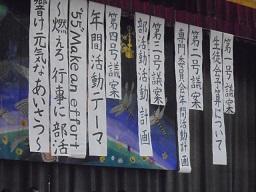 第一号議案
生徒会予算について
第二号議案
専門委員会年間活動計画
第三号議案
部活動活動計画
第四号議案
年間活動テーマ
'55/Make an effort
〜燃えろ行事に部活
響け元気なあいさつ〜